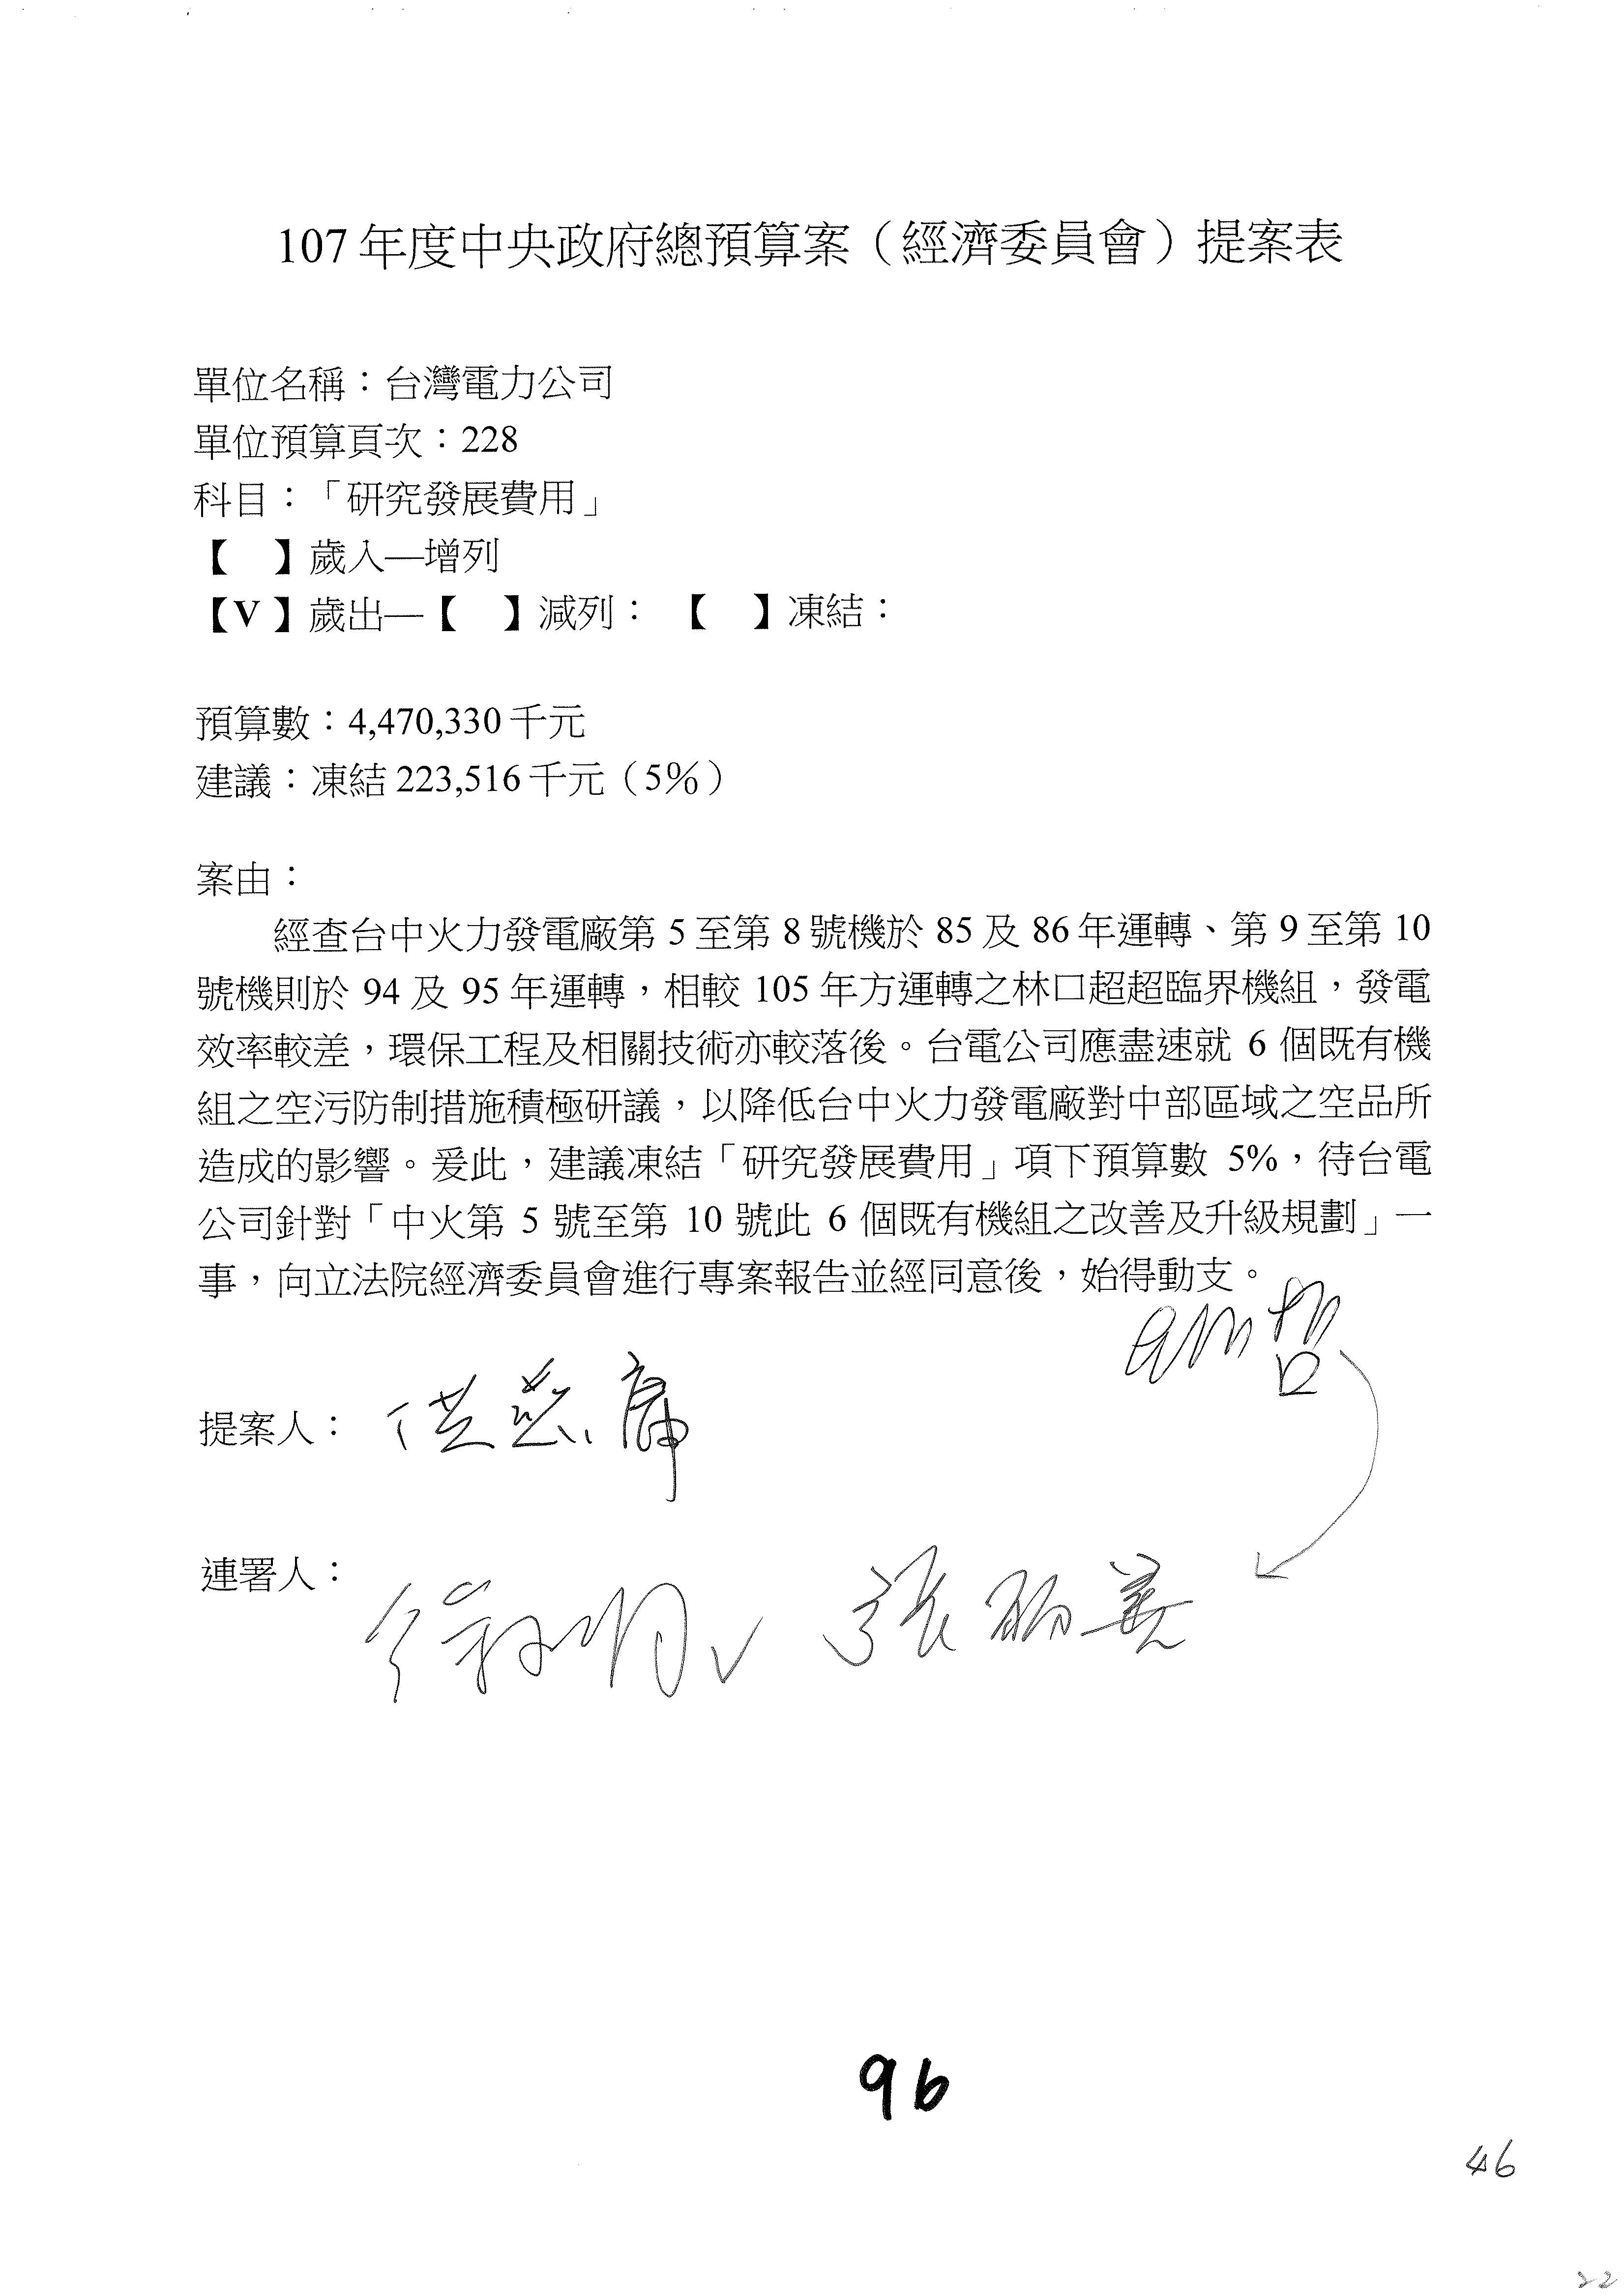 107年度中央政府總預算案（經濟委員會）提案表
單位名稱：台灣電力公司
單位預算頁次：228
科目：「研究發展費用」
【　】歲入—增列
【V】歲出—【　】減列：　【　】凍結：
預算數：4,470,330千元
建議：凍結223,516千元（5%）
案由：
經查台中火力發電廠第5至第8號機於85及86年運轉、第9至第10
號機則於94及95年運轉，相較105年方運轉之林口超超臨界機組，發電
效率較差，環保工程及相關技術亦較落後。台電公司應盡速就6個既有機
組之空污防制措施積極研議，以降低台中火力發電廠對中部區域之空品所
造成的影響。爰此，建議凍結「研究發展費用」項下預算數5%，待台電
公司針對「中火第5號至第10號此6個既有機組之改善及升級規劃」一
事，向立法院經濟委員會進行專案報告並經同意後，始得動支。
提案人：洪慈庸
連署人：
張麗善
96
46
22